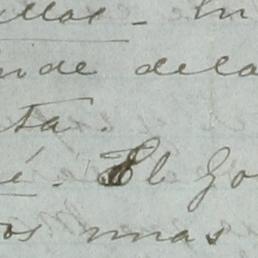 llos - In
nde dela
ta.
é. El Go
os unas